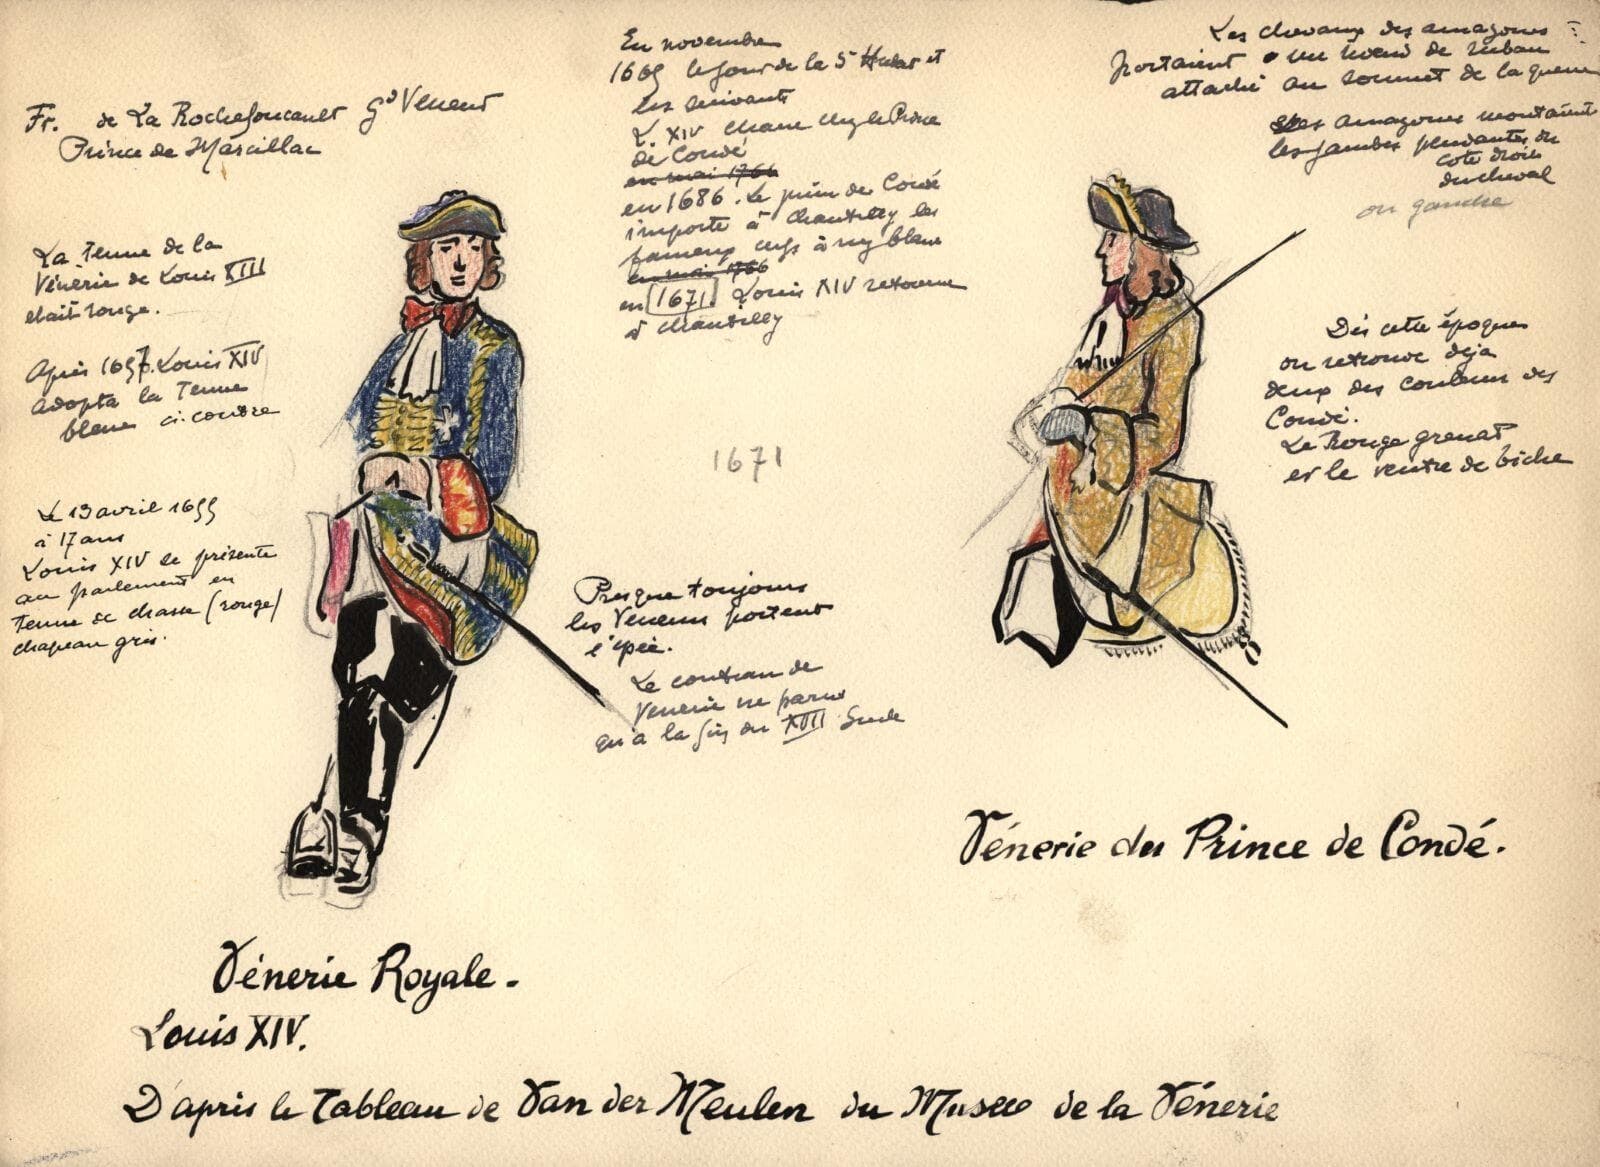 Fr. de La Rochefoucault Gd Veneur
Prince de Marcillac
La Tenue de la
Vénerie de Louis XIII
etait rouge.
Après 1657. Louis XIV
adopta la Tenue
bleue ci-contre
Le 13 avril 1655
à 17 ans
Louis XIV se présente
au parlement en
Tenue de chasse (rouge)
chapeau gris.
En novembre
1665 le jour de la St Hubert et
les suivants
L. XIV chasse chez le Prince
de Condé
en mai 1766
en 1686. Le prince de Condé
importe à Chantilly les
fameux cerfs à nez blanc
en mai 1766
en 1671. Louis XIV retourne
à Chantilly
1671
Presque toujours
les Veneurs portent
l'épée.
Le couteau de
Vénerie ne parut
qu'à la fin du XVIII Siècle
Les chevaux des amazones
portaient un noeud de ruban
attaché au sommet de la queue
Les amazones montaient
les jambes pendantes du
coté droit
du cheval
ou gauche
Dès cette époque
on retrouve déja
deux des couleurs des
Condé.
Le Rouge grenat
et le ventre de biche
Vénerie du Prince de Condé.
Vénerie Royale.
Louis XIV.
D'après le Tableau de Van der Meulen du Musee de la Vénerie